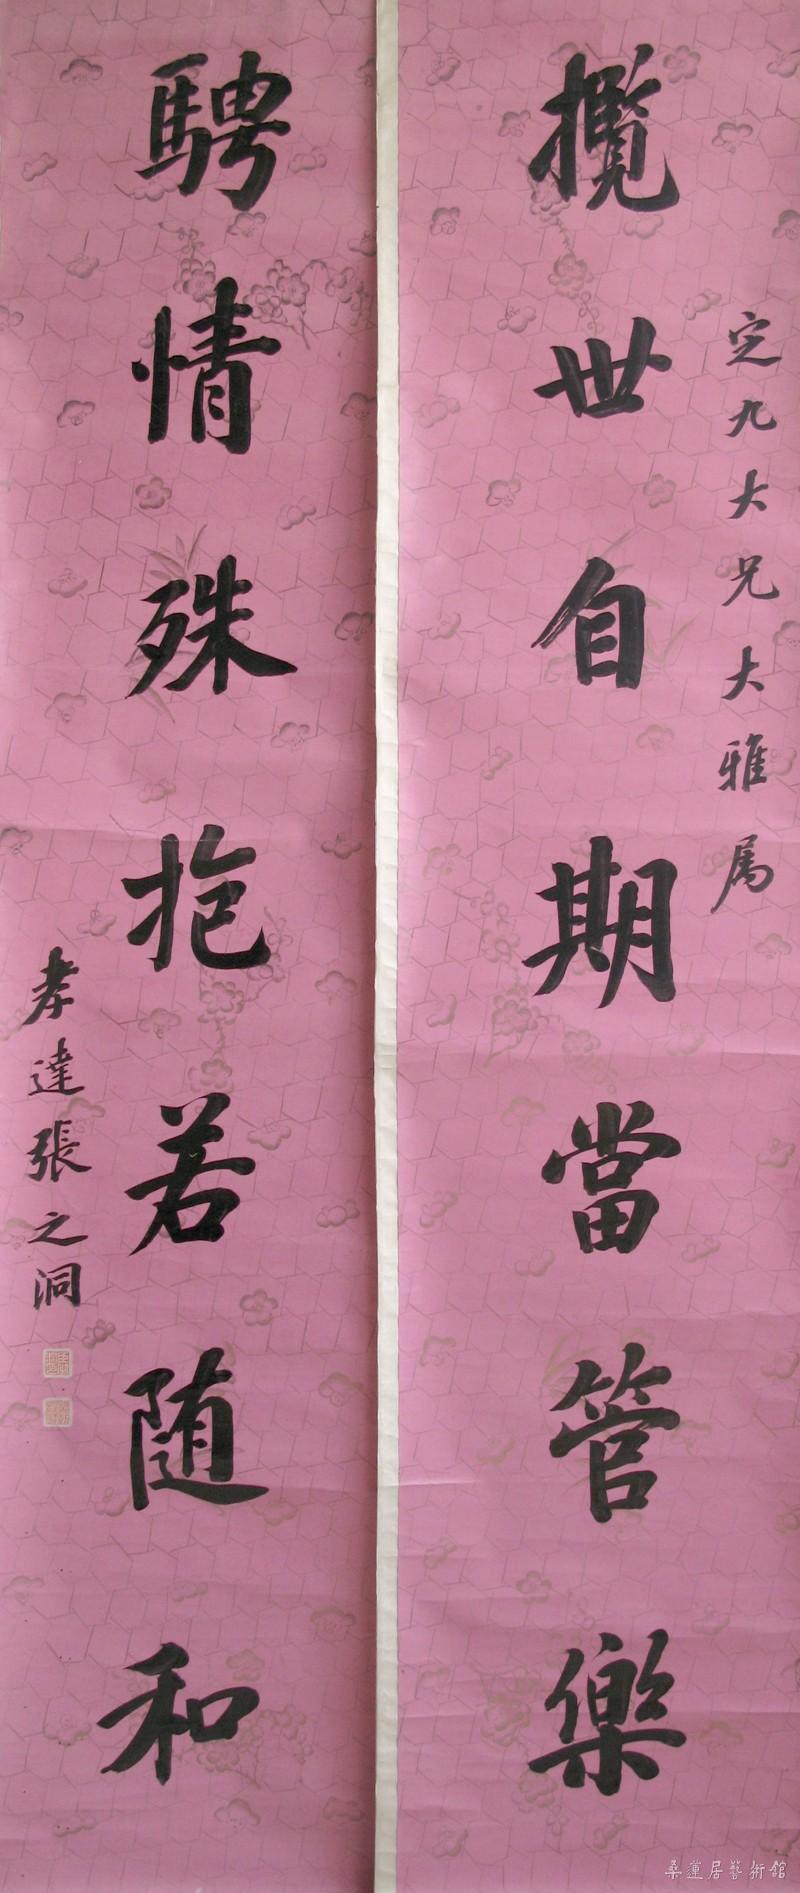 定九大兄大雅属
攬世自期當管樂
騁情殊抱若随和
孝達張之洞
桑蓮居藝術館